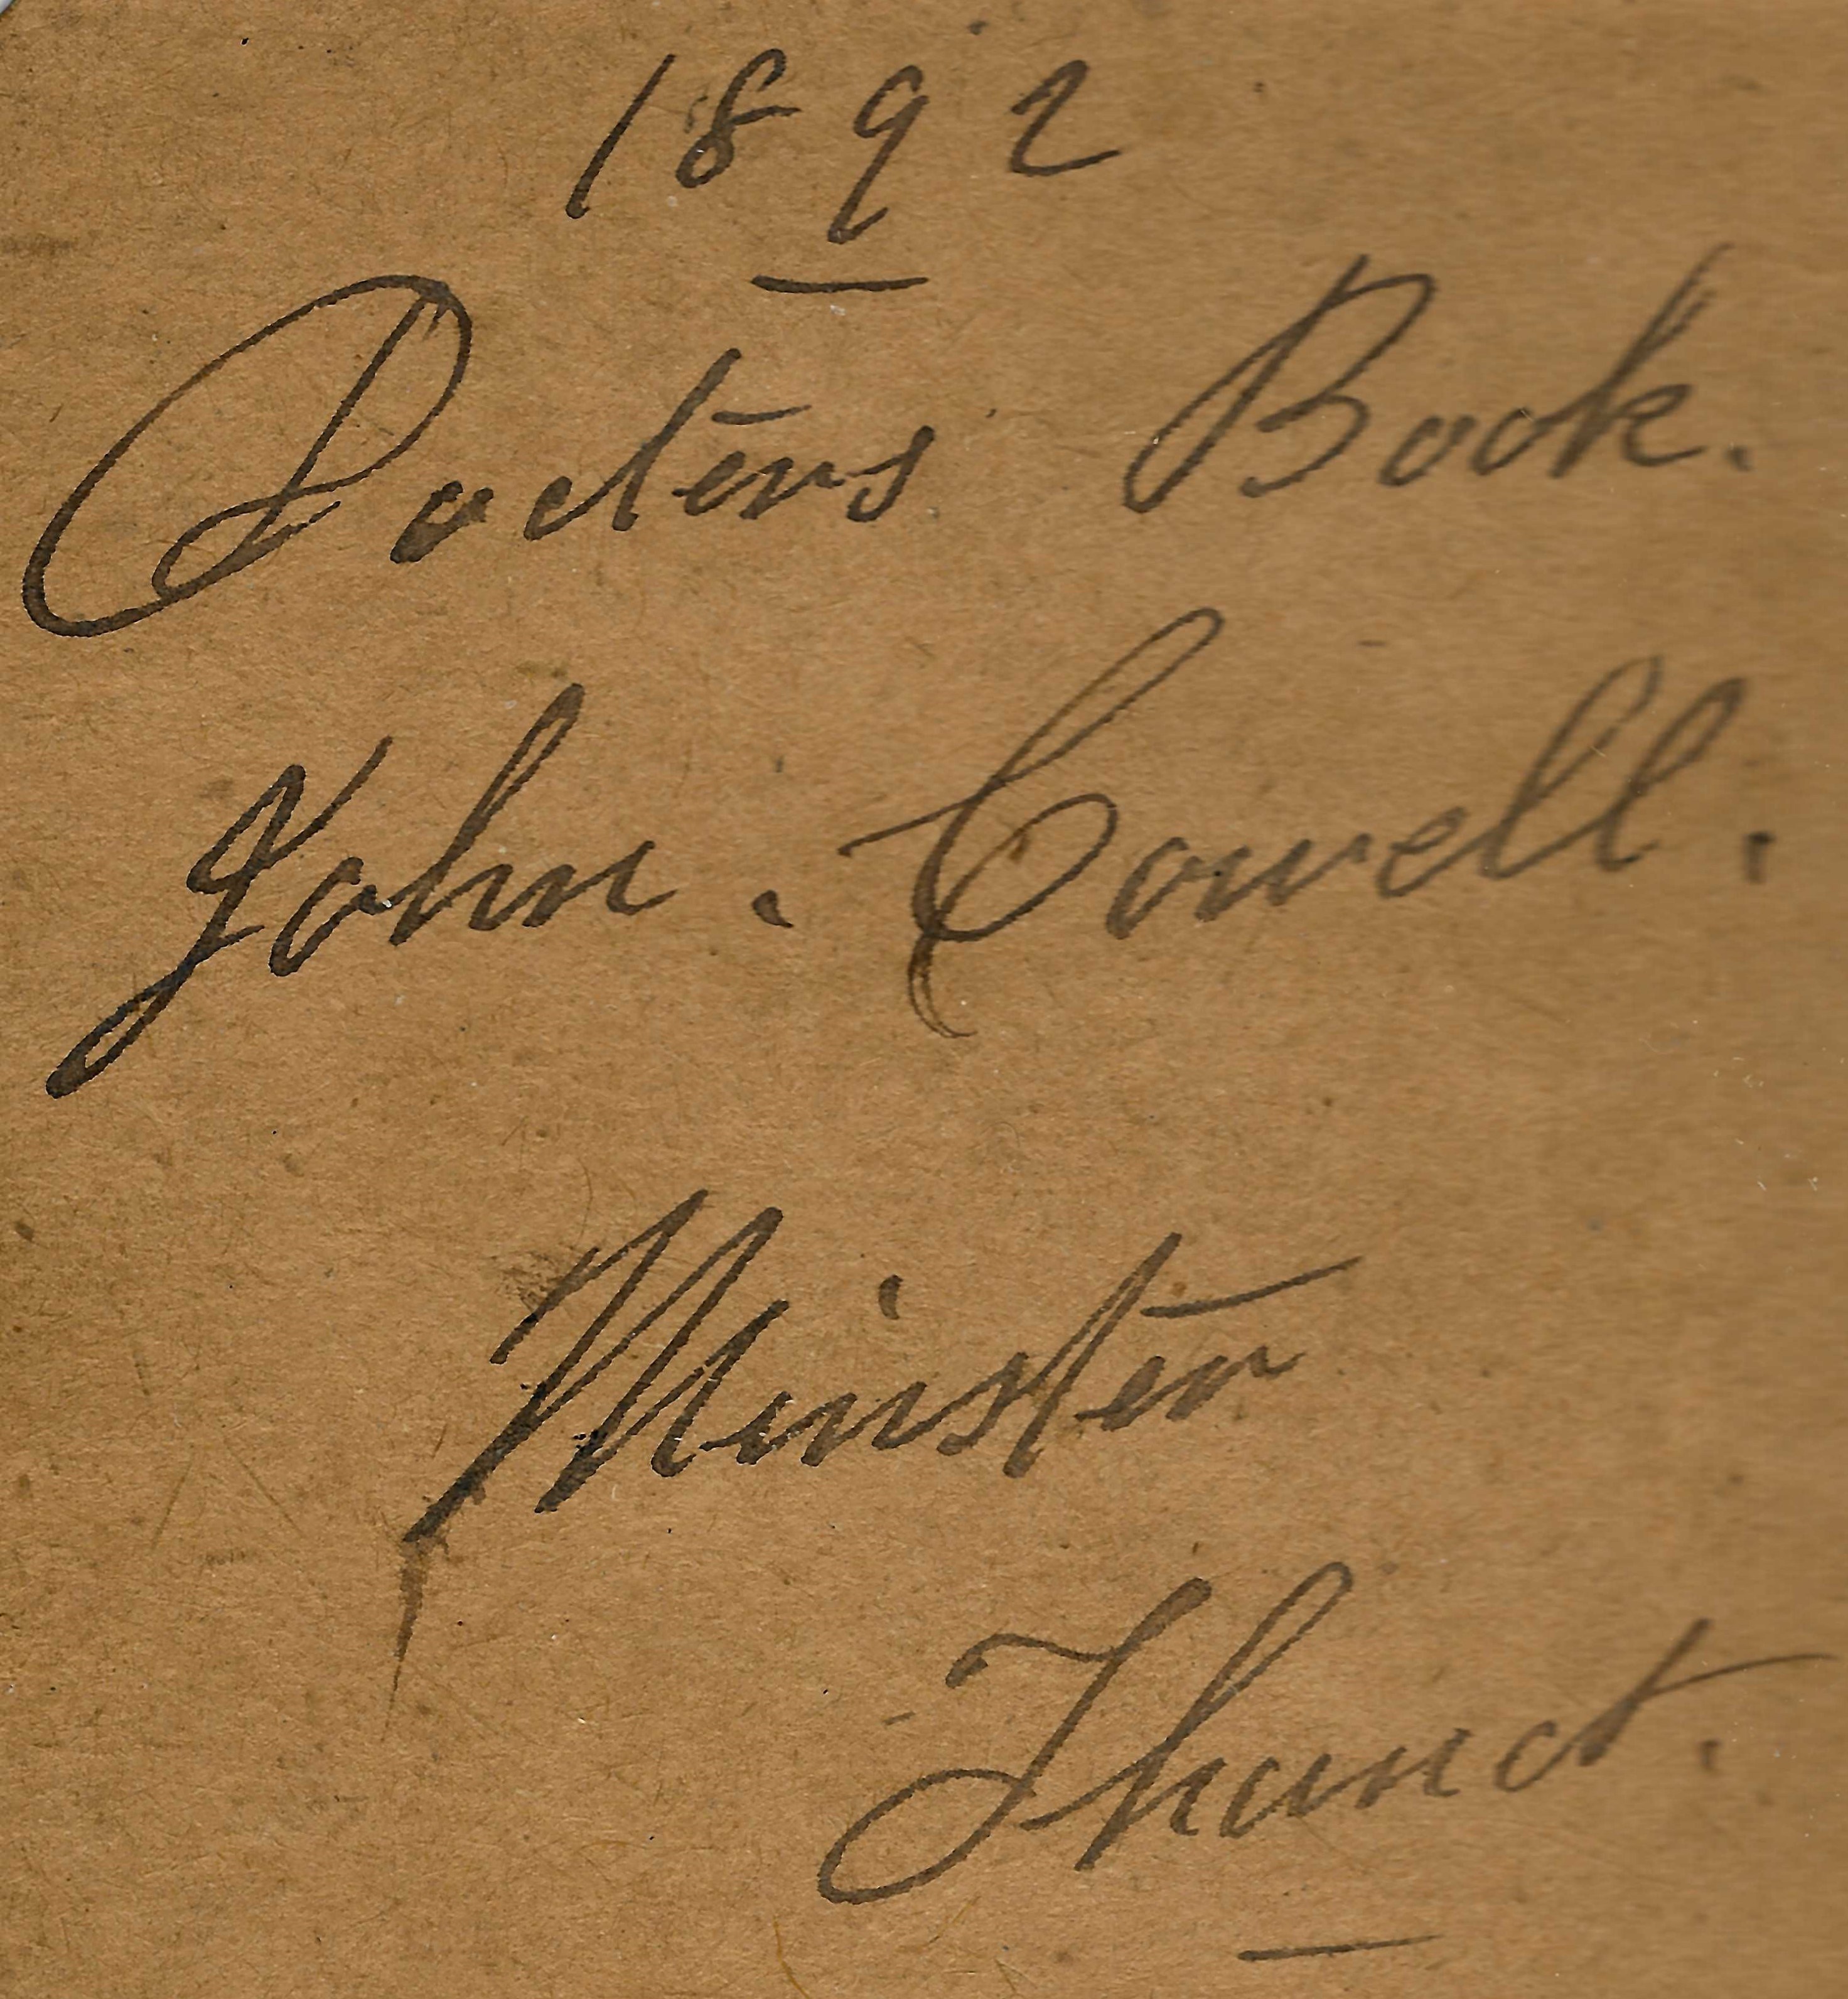 1892
Docters Book.
John. Cowell.
Minster
Thanet.